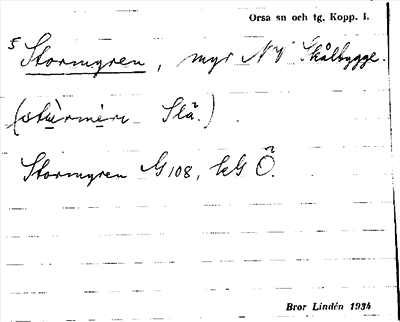 Orsa sn och tg, Kopp. l.
5 Stormyren, myr NV Skålbygge.
Slä.)
Stormyren G108, kG Ö.
Bror Lindén 1934